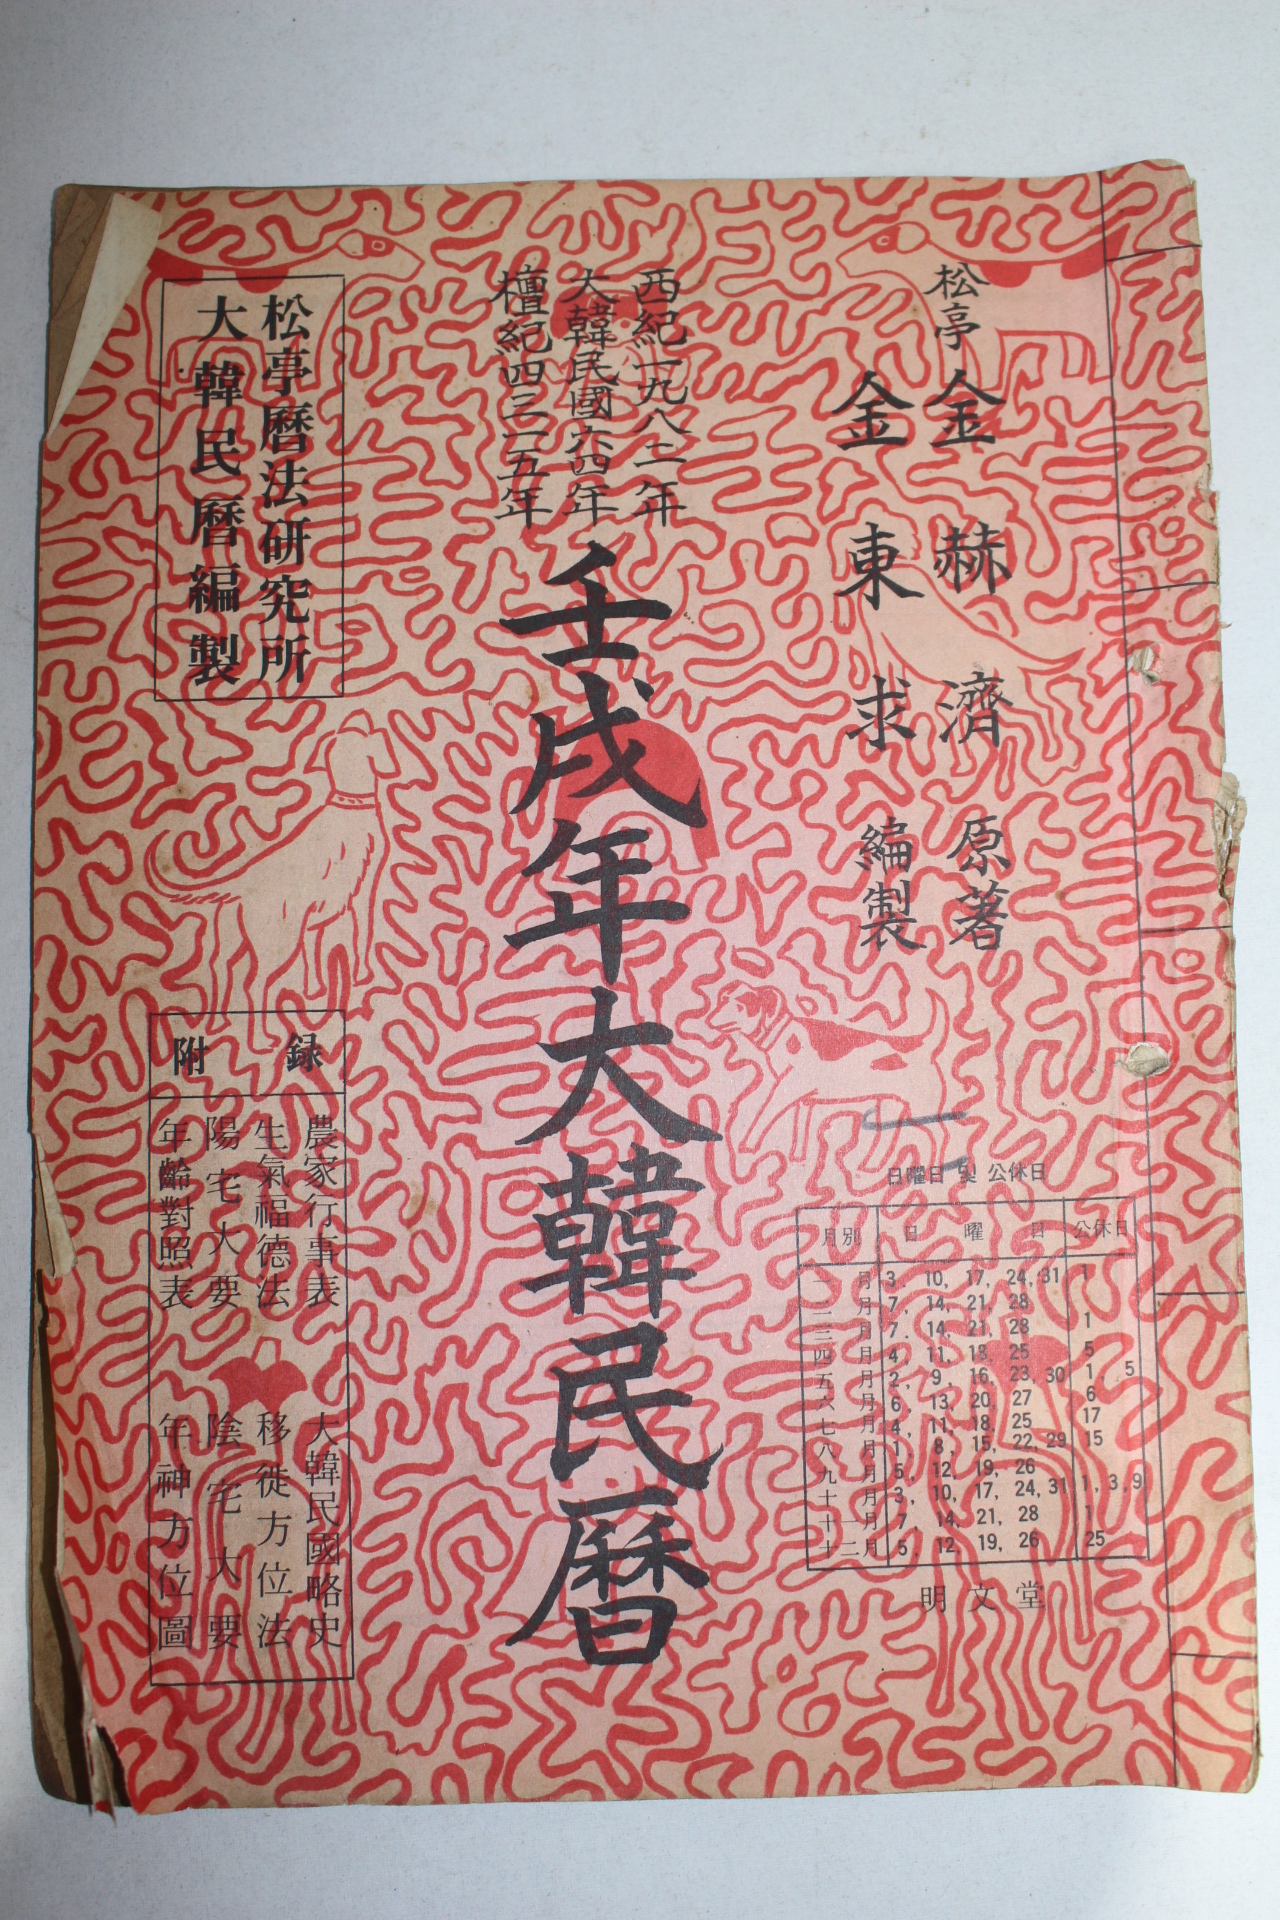 松亭 金赫濟 原著
金東求 編製
西紀一九八二年
大韓民國六四年
檀紀四三一五年
壬戌年大韓民曆
松亭曆法研究所
大韓民曆編製
附 録
農家行事表 大韓民國略史
生氣福德法 移徙方位法
陽宅大要 陰宅大要
年齡對照表 年神方位圖
日曜日 및 公休日
月別 日曜日 公休日
一月 3, 10, 17, 24, 31 1
二月 7, 14, 21, 28
三月 7, 14, 21, 28 1
四月 4, 11, 18, 25 5
五月 2, 9, 16, 23, 30 1, 5
六月 6, 13, 20, 27 6
七月 4, 11, 18, 25 17
八月 1, 8, 15, 22, 29 15
九月 5, 12, 19, 26
十月 3, 10, 17, 24, 31 1, 3, 9
十一月 7, 14, 21, 28 1
十二月 5, 12, 19, 26 25
明文堂